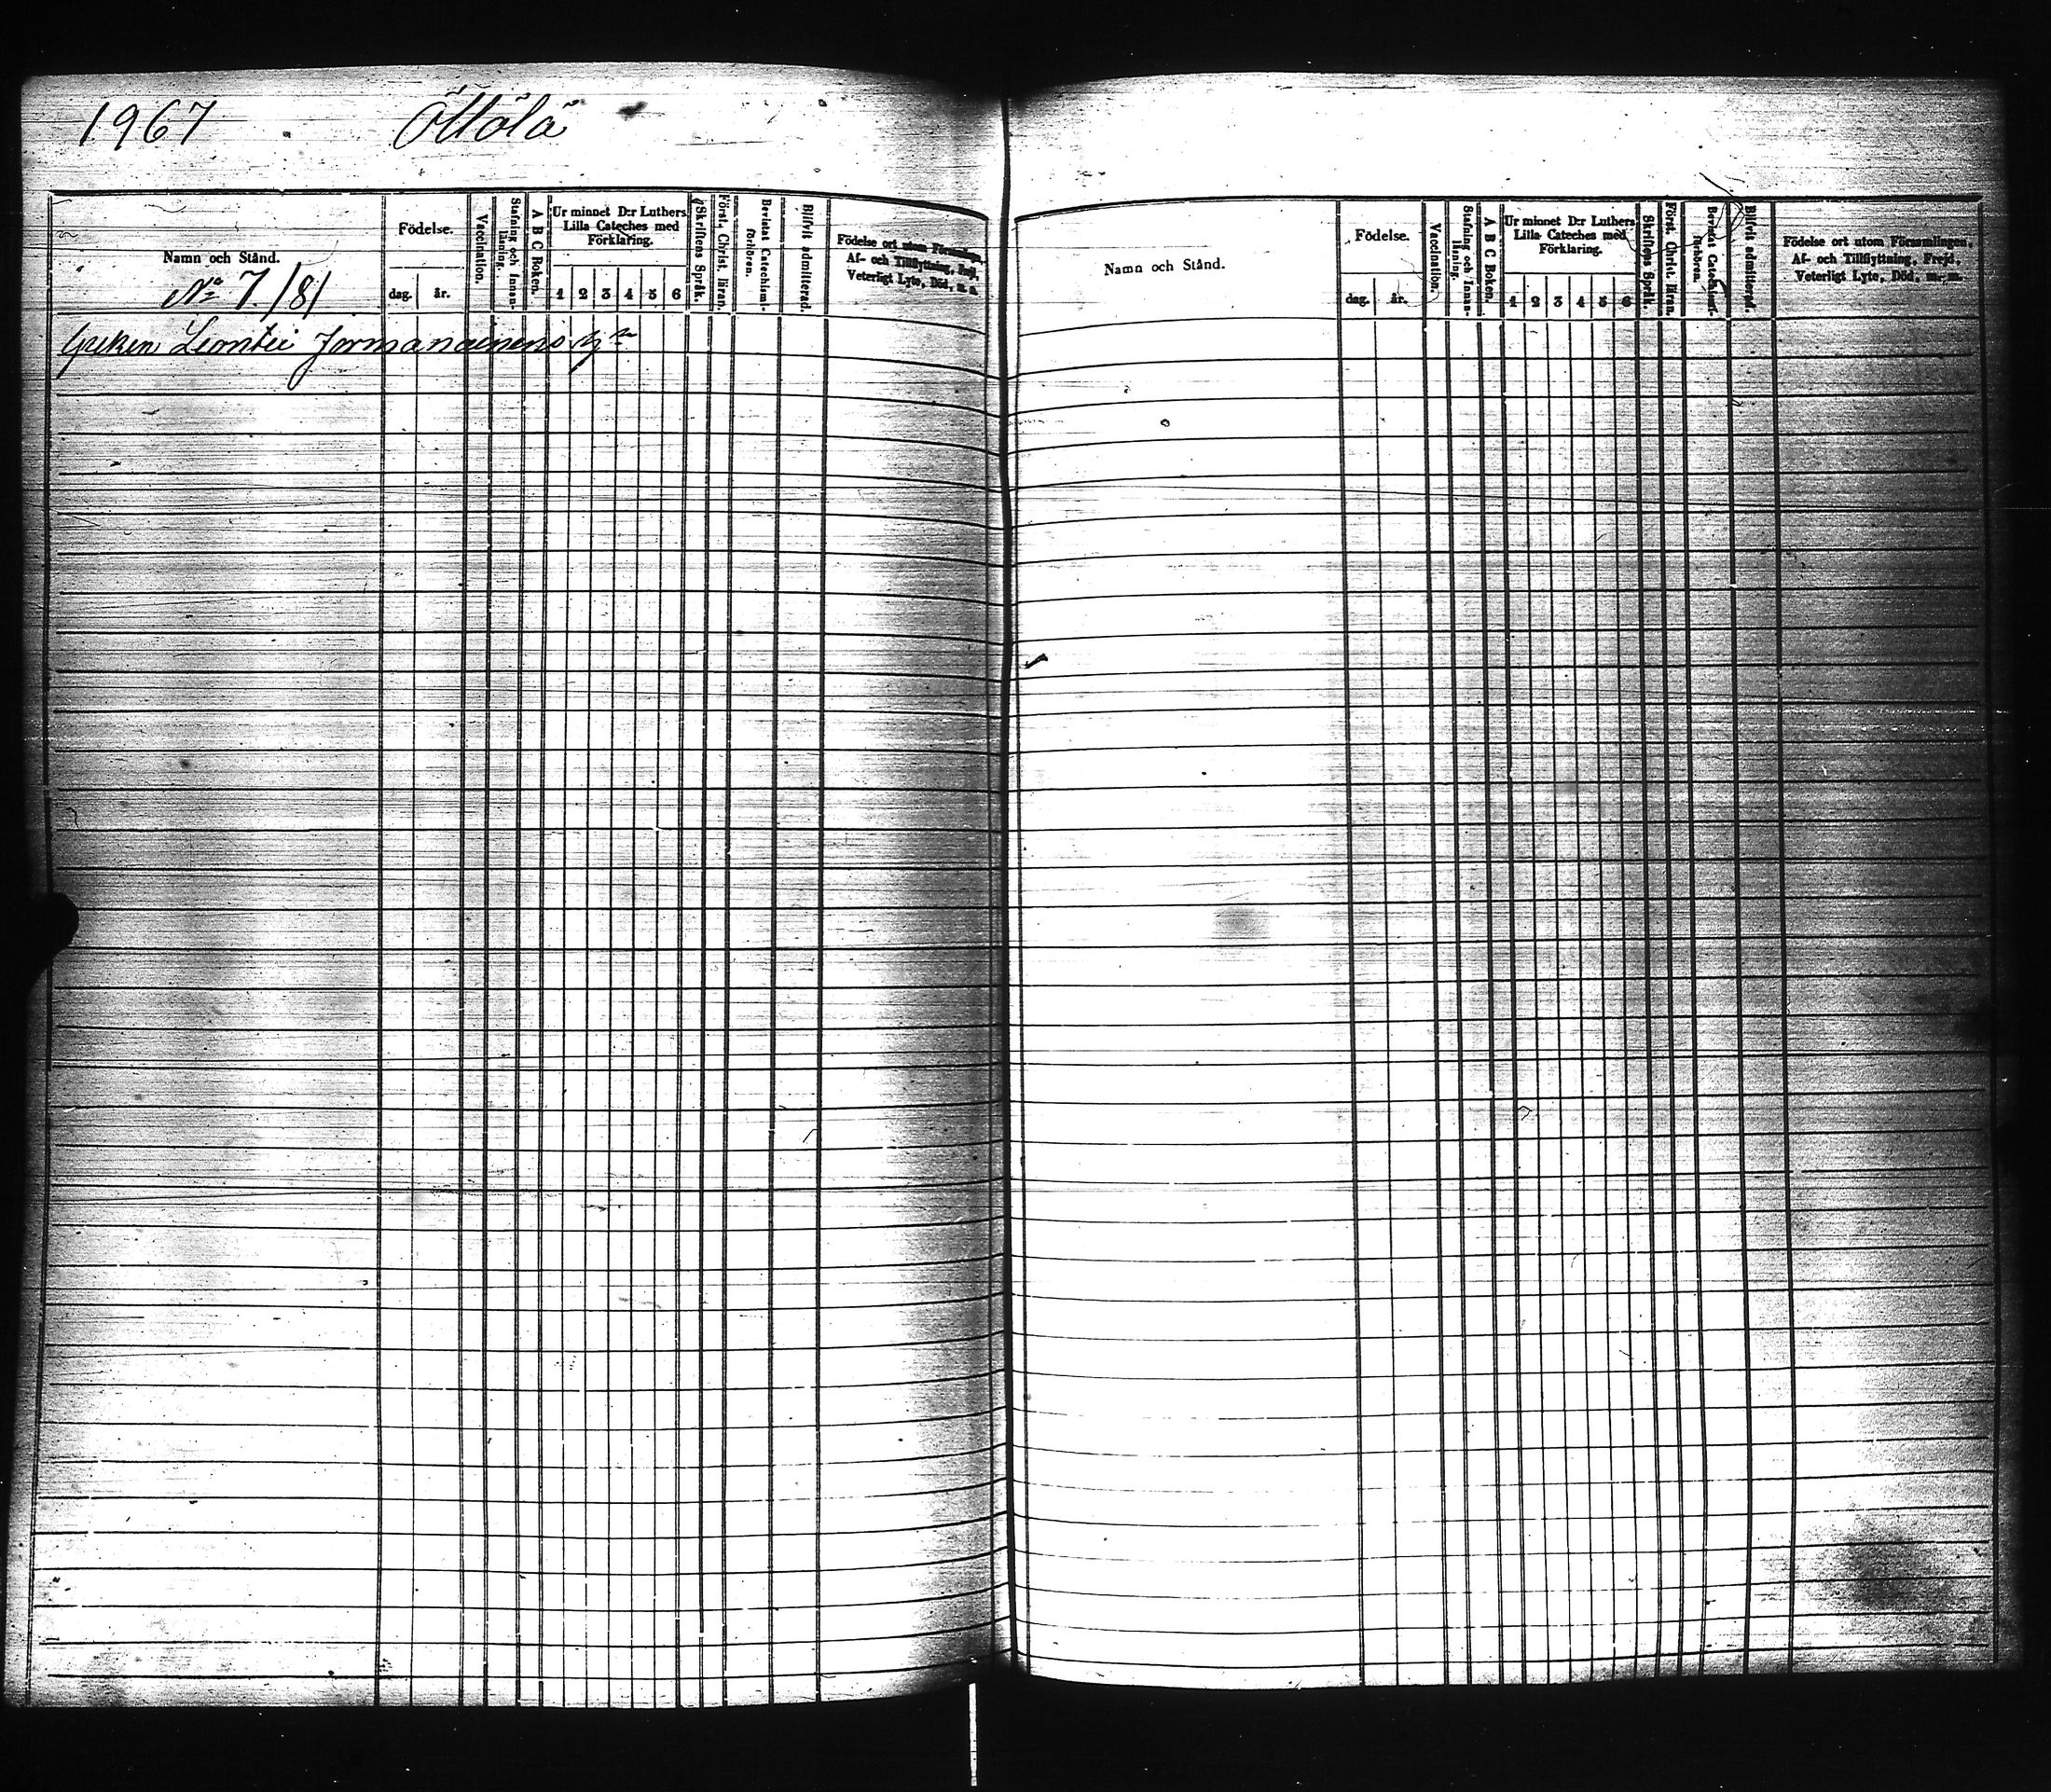 1967 Öllölä
Namn och Stånd.
Födelse.
dag. år.
Vaccination.
Stafning och Innan-
läsning.
A B C Boken.
Ur minnet D:r Luthers
Lilla Cateches med
Förklaring.
1 2 3 4 5 6
Skriftens Språk.
Först. Christ. läran.
Bevistat Catechismi-
förhören.
Blifvit admitterad.
Födelse ort utom Församlingen,
Af- och Tillflyttning, Frejd,
Veterligt Lyte, Död, m. m.
No 7. /8/
Greken Leontei Jormanainens
Namn och Stånd.
Födelse.
dag. år.
Vaccination.
Stafning och Innan-
läsning.
A B C Boken.
Ur minnet D:r Luthers
Lilla Cateches med
Förklaring.
1 2 3 4 5 6
Skriftens Språk.
Först. Christ. läran.
Bevistat Catechismi-
förhören.
Blifvit admitterad.
Födelse ort utom Församlingen,
Af- och Tillflyttning, Frejd,
Veterligt Lyte, Död, m. m.